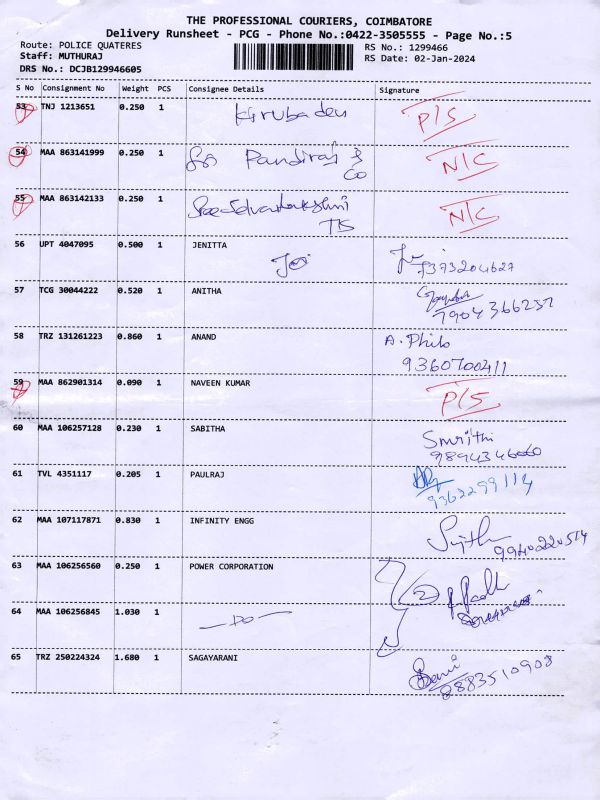 THE PROFESSIONAL COURIERS, COIMBATORE
Delivery Runsheet - PCG - Phone No.:0422-3505555 - Page No.:5
Route: POLICE QUATERES
RS No.: 1299466
Staff: MUTHURAJ
RS Date: 02-Jan-2024
DRS No.: DCJB129946605
S No Consignment No Weight PCS Consignee Details Signature
53 TNJ 1213651 0.250 1 Kirubadevi P/S
54 MAA 863141999 0.250 1 Sri Pandiraj & Co N/C
55 MAA 863142133 0.250 1 N/C
56 UPT 4047095 0.500 1 JENITTA
Joi 7373204627
57 TCG 30044222 0.520 1 ANITHA
7904366257
58 TRZ 131261223 0.860 1 ANAND A. Philo
9360700411
59 MAA 862901314 0.090 1 NAVEEN KUMAR P/S
60 MAA 106257128 0.230 1 SABITHA Smrithi
9894346060
61 TVL 4351117 0.205 1 PAULRAJ
9362299114
62 MAA 107117871 0.830 1 INFINITY ENGG
9940220514
63 MAA 106256560 0.250 1 POWER CORPORATION 2
64 MAA 106256845 1.030 1 -DO-
65 TRZ 250224324 1.680 1 SAGAYARANI
8883510908